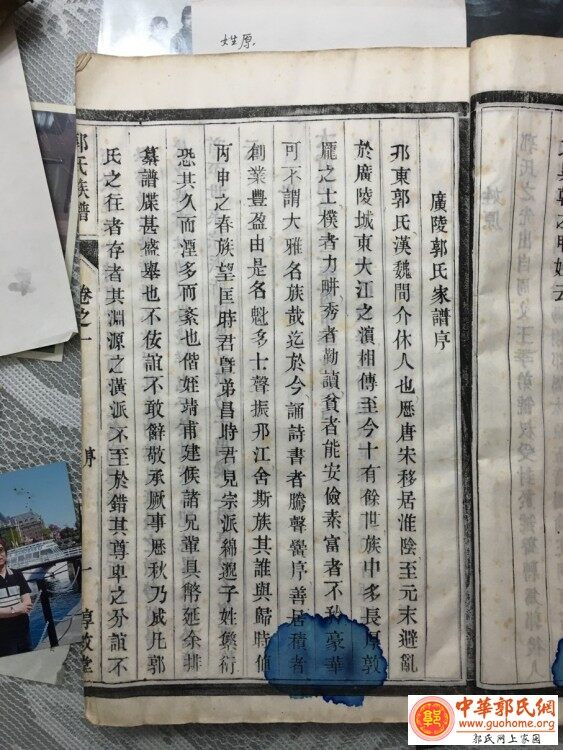 姓原
廣陵郭氏家譜序
邗東郭氏漢魏間介休人也歷唐宋移居淮陰至元末避亂
於廣陵城東大江之濱相傳至今十有餘世族中多長厚敦
龐之士樸者力畊秀者勤讀貧者能安儉素富者不矜豪華
可不謂大雅名族哉迄於今誦詩書者騰聲黌序善居積者
創業豐盈由是名魁多士聲振邗江舍斯族其誰與歸時值
丙申之春族望匡時君曁弟昌時君見宗派綿邈子姓繁衍
恐其久而湮多而紊也偕姪靖甫建候諸兄輩具幣延余排
纂譜牒甚盛舉也不佞誼不敢辭敬承厥事歷秋乃成凡郭
氏之往者存者其淵源之潢派不至於錯其尊卑之分誼不
郭氏族譜 卷之一 序 一 惇敘堂
中華郭氏網
www.guohome.org
郭氏网上家园